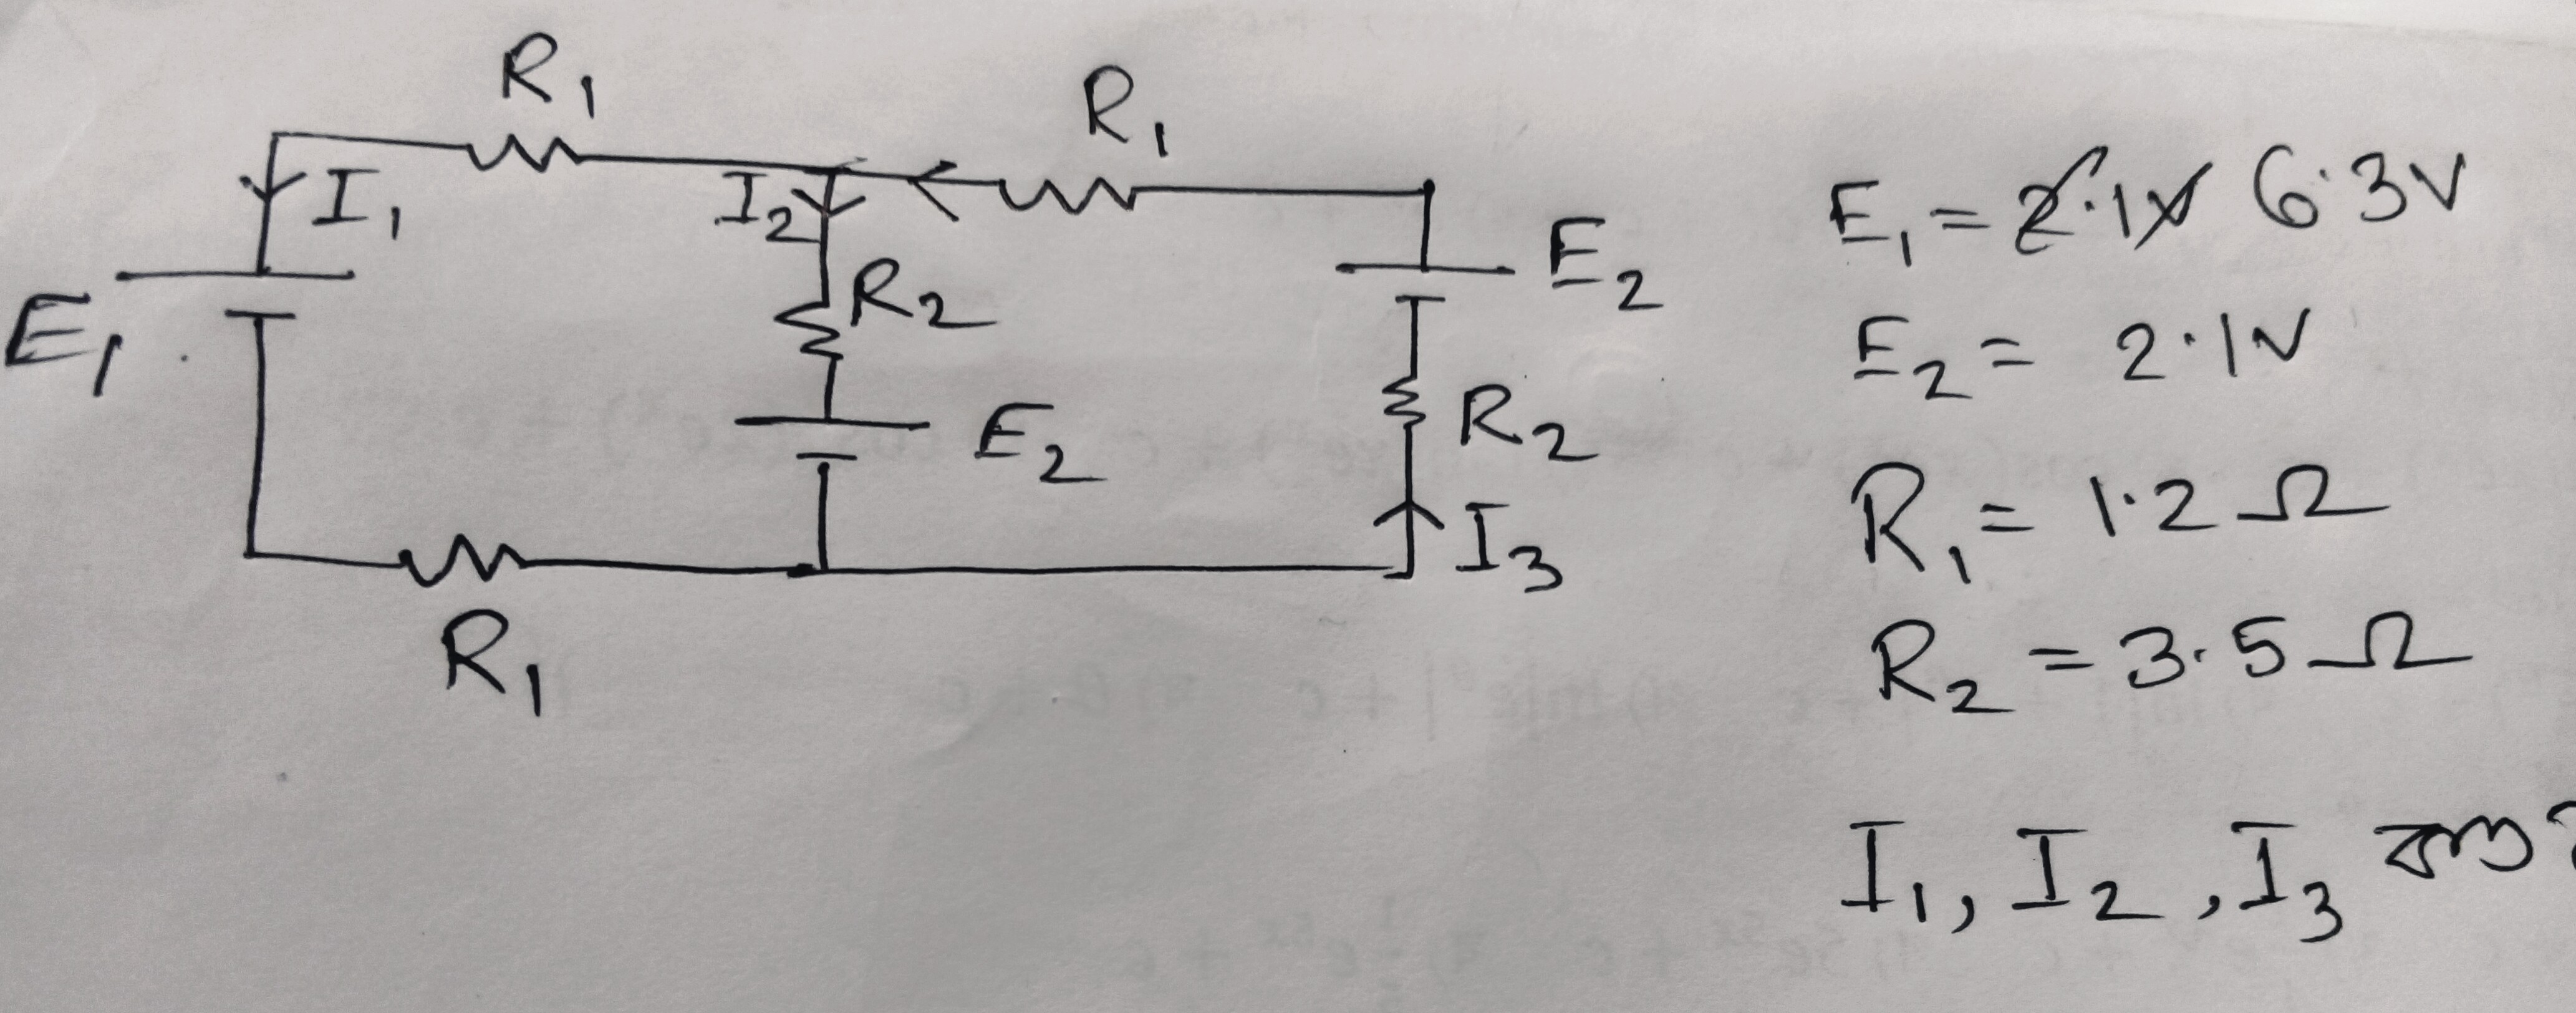 R1
R1
I1
I2
E1
R2
E2
E2
R2
I3
R1
E1 = 2.1V 6.3V
E2 = 2.1V
R1 = 1.2 Ω
R2 = 3.5 Ω
I1, I2, I3 কত?